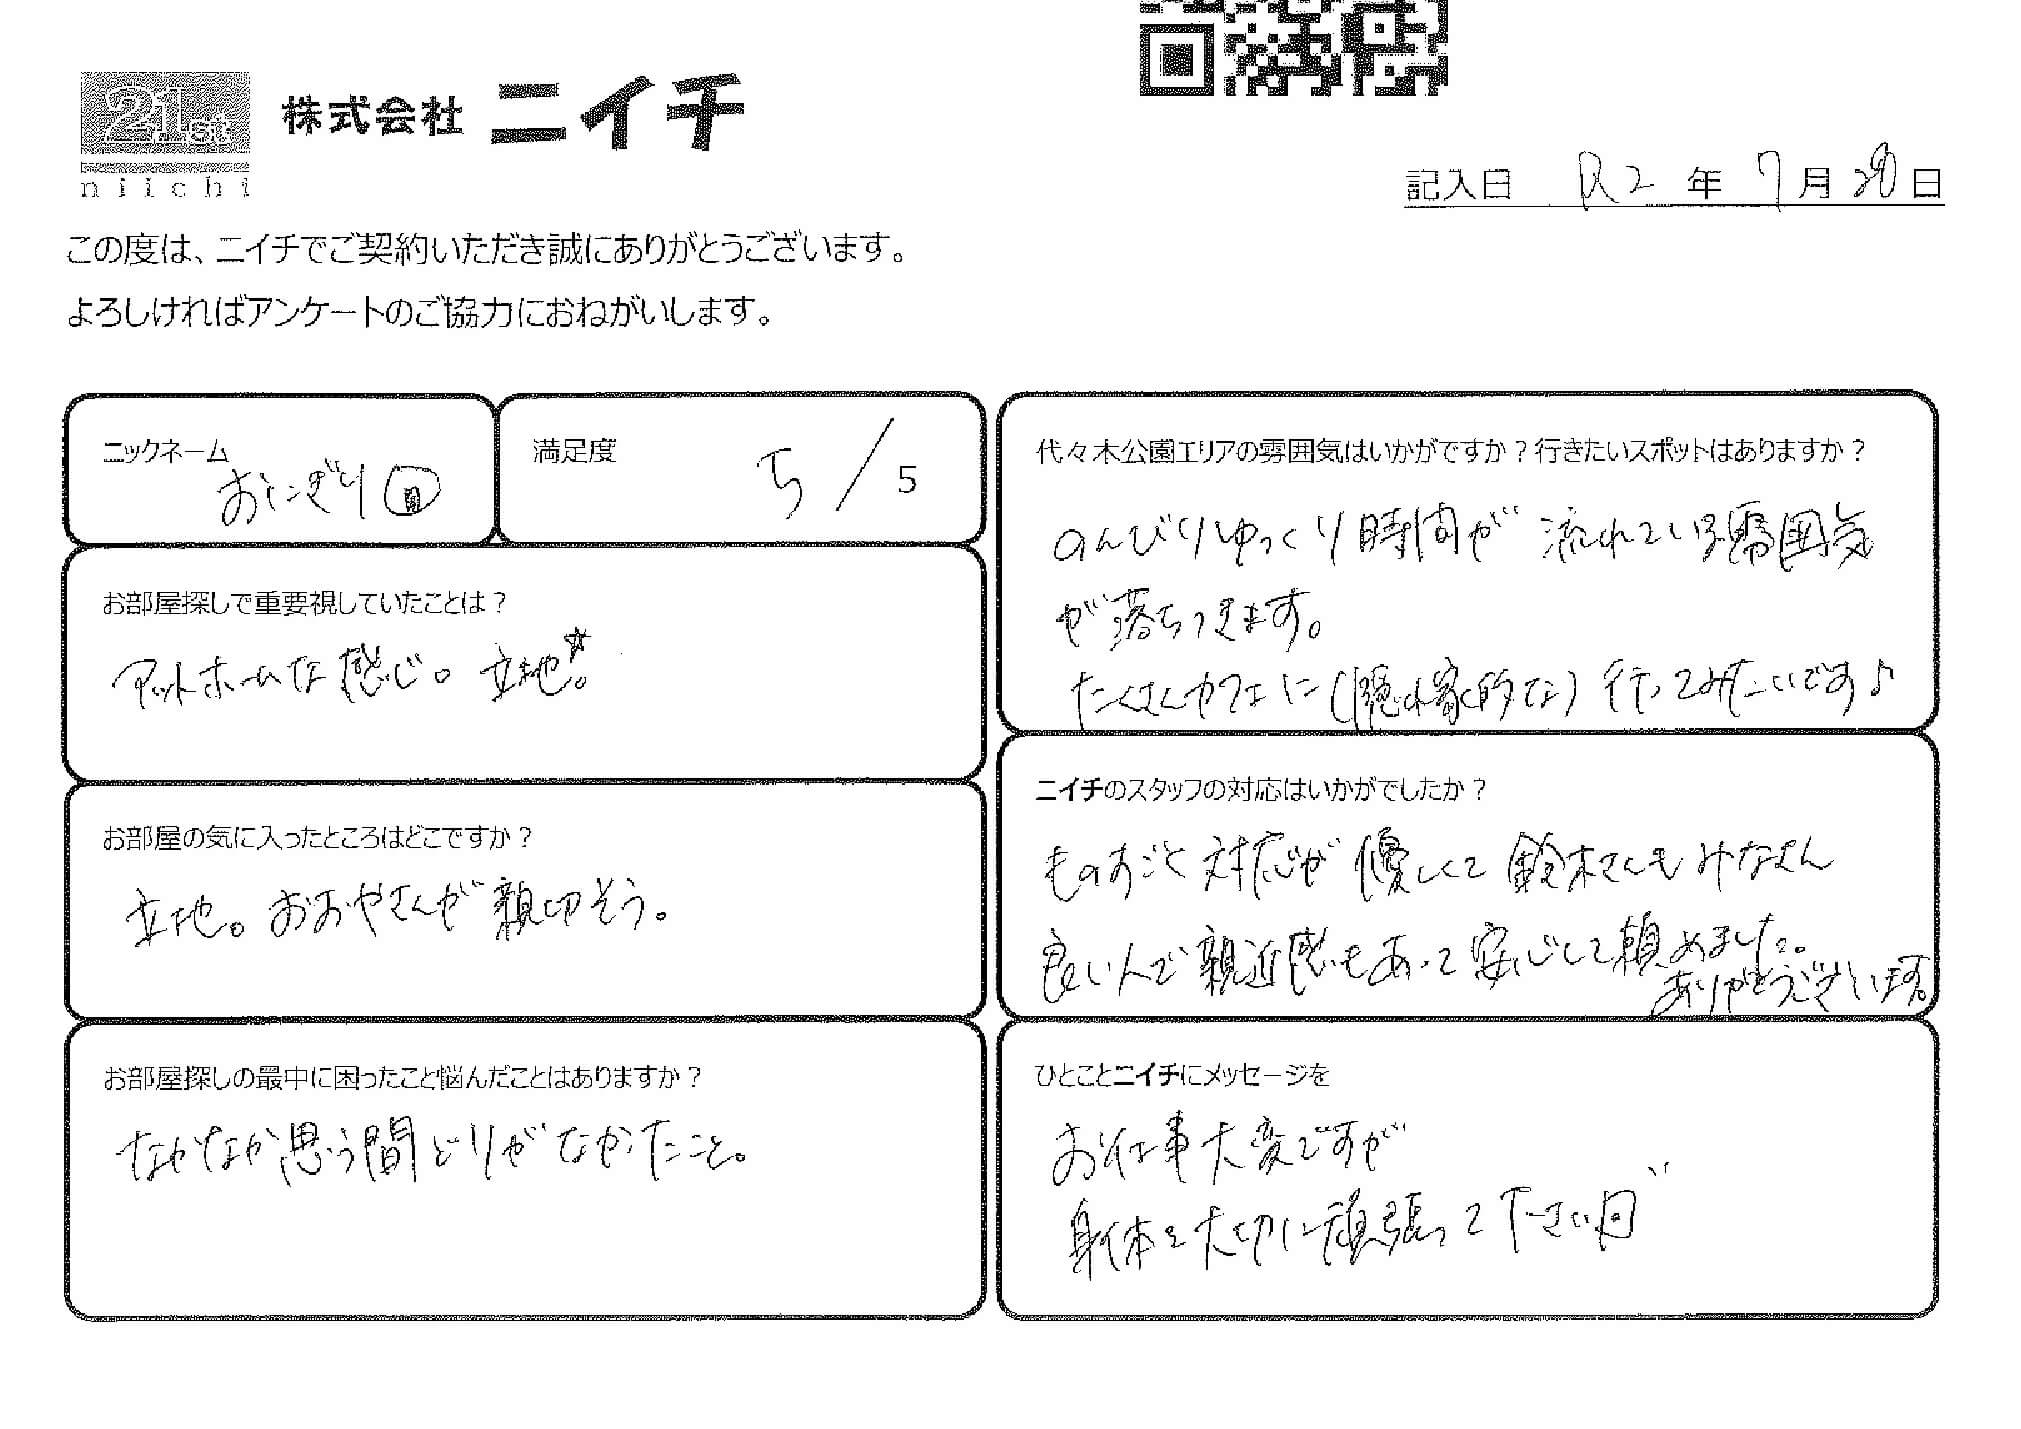 21st
niichi
株式会社 ニイチ
記入日 R2 年 7 月 28 日
この度は、ニイチでご契約いただき誠にありがとうございます。
よろしければアンケートのご協力におねがいします。
ニックネーム
おにぎり
満足度
5 / 5
お部屋探しで重要視していたことは？
アットホームな感じ。立地。☆
お部屋の気に入ったところはどこですか？
立地。おおやさんが親切そう。
お部屋探しの最中に困ったこと悩んだことはありますか？
なかなか思う間どりがなかったこと。
代々木公園エリアの雰囲気はいかがですか？行きたいスポットはありますか？
のんびりゆっくり時間が流れている雰囲気
が落ちつきます。
たくさんカフェに(隠れ家的な)行ってみたいです♪
ニイチのスタッフの対応はいかがでしたか？
ものすごく対応が優しくて鈴木さんもみなさん
良い人で親近感もあって安心して頼めました。
ありがとうございます。
ひとことニイチにメッセージを
お仕事大変ですが
身体を大切に頑張って下さい